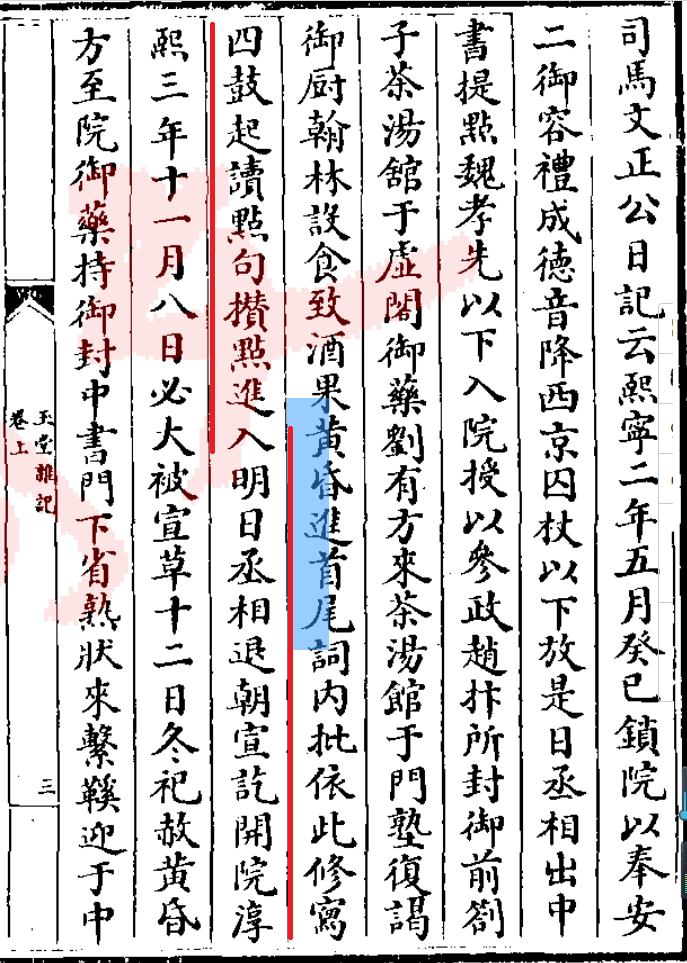 司馬文正公日記云熙寧二年五月癸巳鎖院以奉安
二御容禮成德音降西京囚杖以下放是日丞相出中
書提點魏孝先以下入院授以參政趙抃所封御前劄
子茶湯舘于虛閣御藥劉有方來茶湯館于門塾復謁
御厨翰林設食致酒果黃昏進首尾詞内批依此修寫
四鼓起讀點句攢點進入明日丞相退朝宣訖開院淳
熙三年十一月八日必大被宣草十二日冬祀赦黃昏
方至院御藥持御封中書門下省熟狀來繫鞵迎于中
玉堂雜記
卷上
三